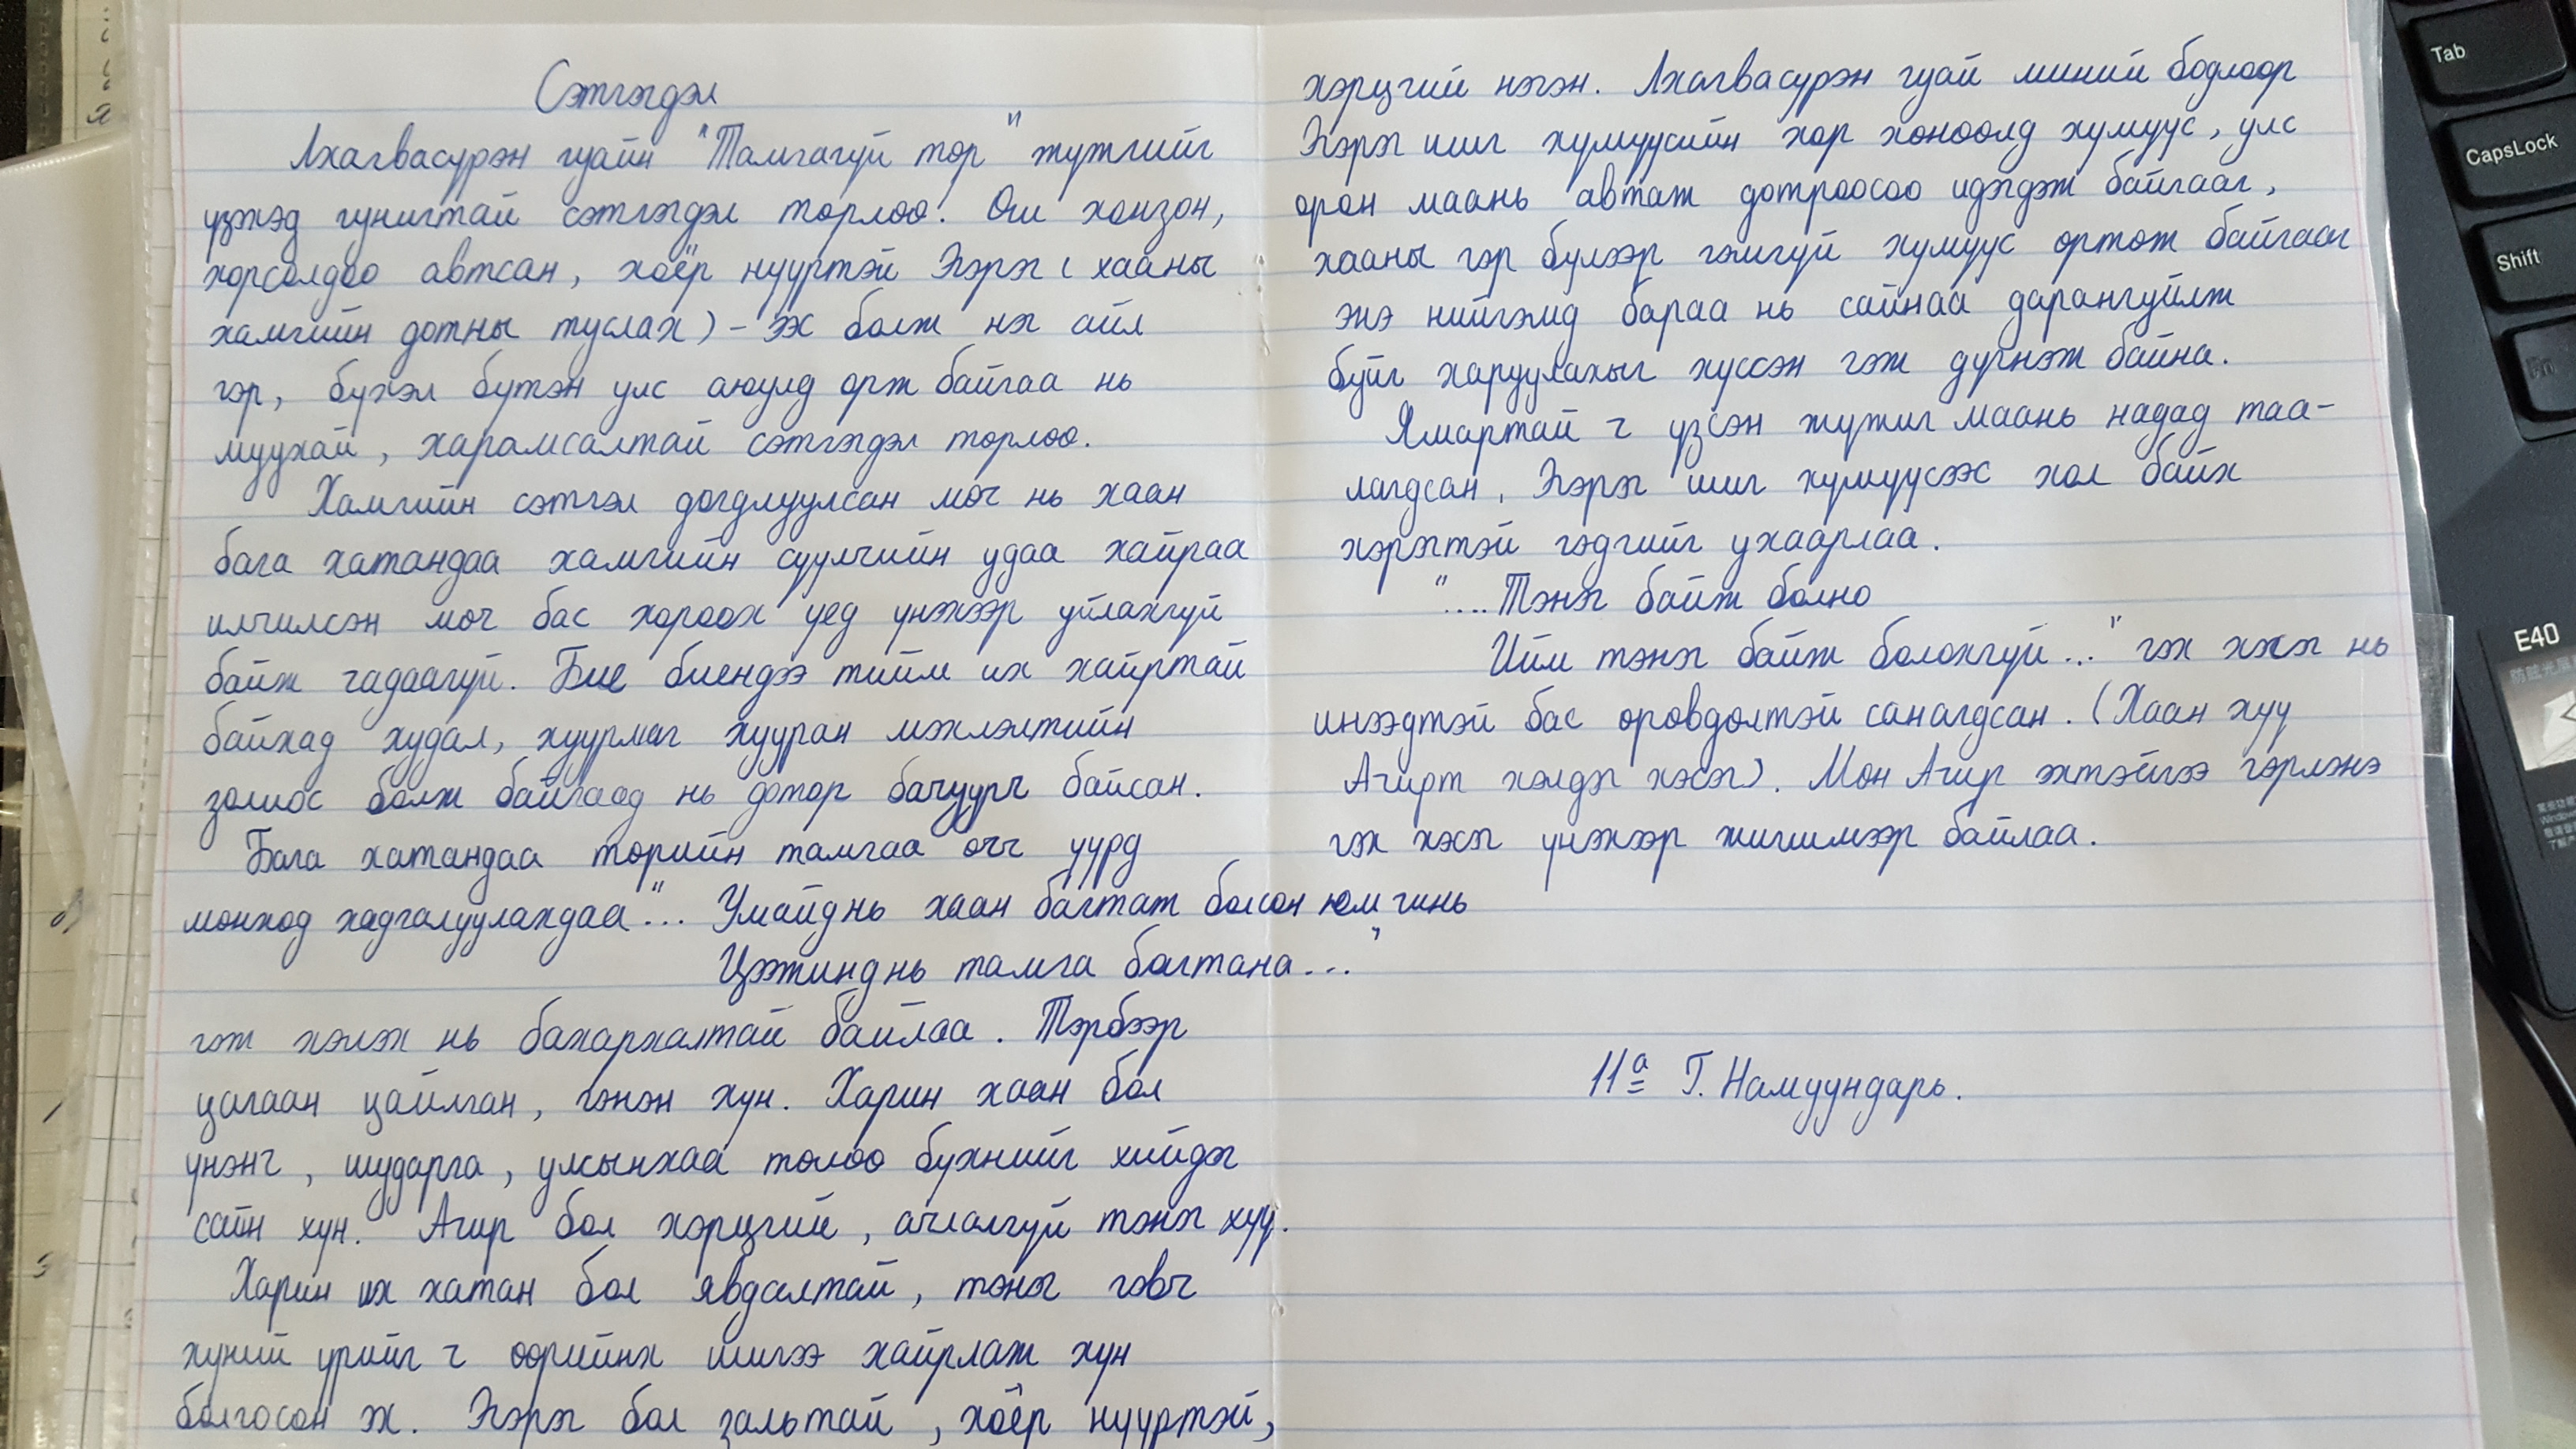 Сэтгэгдэл
Лхагвасүрэн гуайн "Тамгагүй төр" жүжгийг
үзэхэд гунигтай сэтгэгдэл төрлөө. Өш хонзон,
хорсолдоо автсан, хоёр нүүртэй Эгэрэг (хааны
хамгийн дотны туслах) - ээс болж нэг айл
гэр, бүхэл бүтэн улс аюулд орж байгаа нь
муухай, харамсалтай сэтгэгдэл төрлөө.
Хамгийн сэтгэл догдлуулсан мөч нь хаан
бага хатандаа хамгийн сүүлчийн удаа хайраа
илчилсэн мөч бас хороох үед үнэхээр уйлахгүй
байж чадаагүй. Бие биендээ тийм их хайртай
байхад худал, хуурмаг хууран мэхлэлтийн
золиос болж байгаад нь дотор бачуурч байсан.
Бага хатандаа төрийн тамгаа өгч үүрд
мөнхөд хадгалуулахдаа "... Умайд нь хаан багтаж болсон юм чинь
Цээжинд нь тамга багтана..."
гэж хэлэх нь бахархалтай байлаа. Тэрбээр
цагаан цайлган, гэнэн хүн. Харин хаан бол
үнэнч, шударга, улсынхаа төлөө бүхнийг хийдэг
сайн хүн. Агир бол хэрцгий, ачлалгүй тэнэг хүү.
Харин их хатан бол явдалтай, тэнэг гэвч
хүний үрийг ч өөрийнх шигээ хайрлаж хүн
болгосон эх. Эгэрэг бол зальтай, хоёр нүүртэй,
хэрцгий нэгэн. Лхагвасүрэн гуай миний бодлоор
Эгэрэг шиг хүмүүсийн хор хөнөөлд хүмүүс, улс
орон маань автаж дотроосоо идэгдэж байгааг,
хааны гэр бүлээр гэмгүй хүмүүс өртөж байгааг
энэ нийгэмд бараа нь сайнаа дарангуйлж
буйг харуулахыг хүссэн гэж дүгнэж байна.
Ямартай ч үзсэн жүжиг маань надад таа-
лагдсан, Эгэрэг шиг хүмүүсээс хол байх
хэрэгтэй гэдгийг ухаарлаа.
".... Тэнэг байж болно
Ийм тэнэг байж болохгүй..." гэх хэсэг нь
инээдтэй бас өрөвдөлтэй санагдсан. (Хаан хүү
Агирт хэлдэг хэсэг). Мөн Агир эхтэйгээ гэрлэнэ
гэх хэсэг үнэхээр жигшмээр байлаа.
11а Г. Намуундарь.
Tab
CapsLock
Shift
Fn
E40